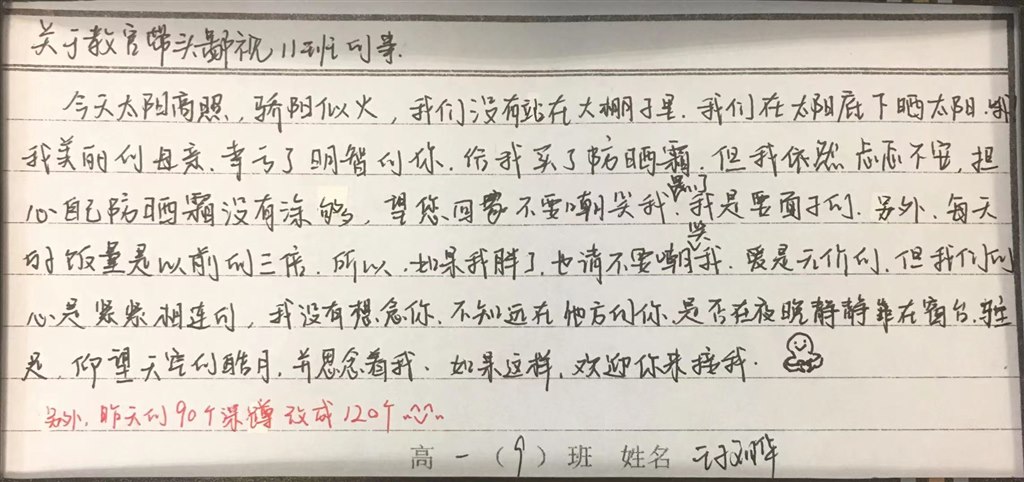 关于教官带头鄙视11班的事.
今天太阳高照,骄阳似火,我们没有站在大棚子里.我们在太阳底下晒太阳.
我美丽的母亲.幸亏了明智的你.给我买了防晒霜.但我依然忐忑不安,担
心自己防晒霜没有涂够,望您回家不要嘲笑我黑了.我是要面子的.另外.每天
的饭量是以前的三倍.所以.如果我胖了,也请不要嘲笑我.爱是无价的.但我们的
心是紧紧相连的,我没有想念你.不知远在他方的你.是否在夜晚静静靠在窗台.驻
足.仰望天空的皓月.并思念着我.如果这样,欢迎你来接我.
另外,昨天的90个深蹲改成120个
高一(9)班 姓名